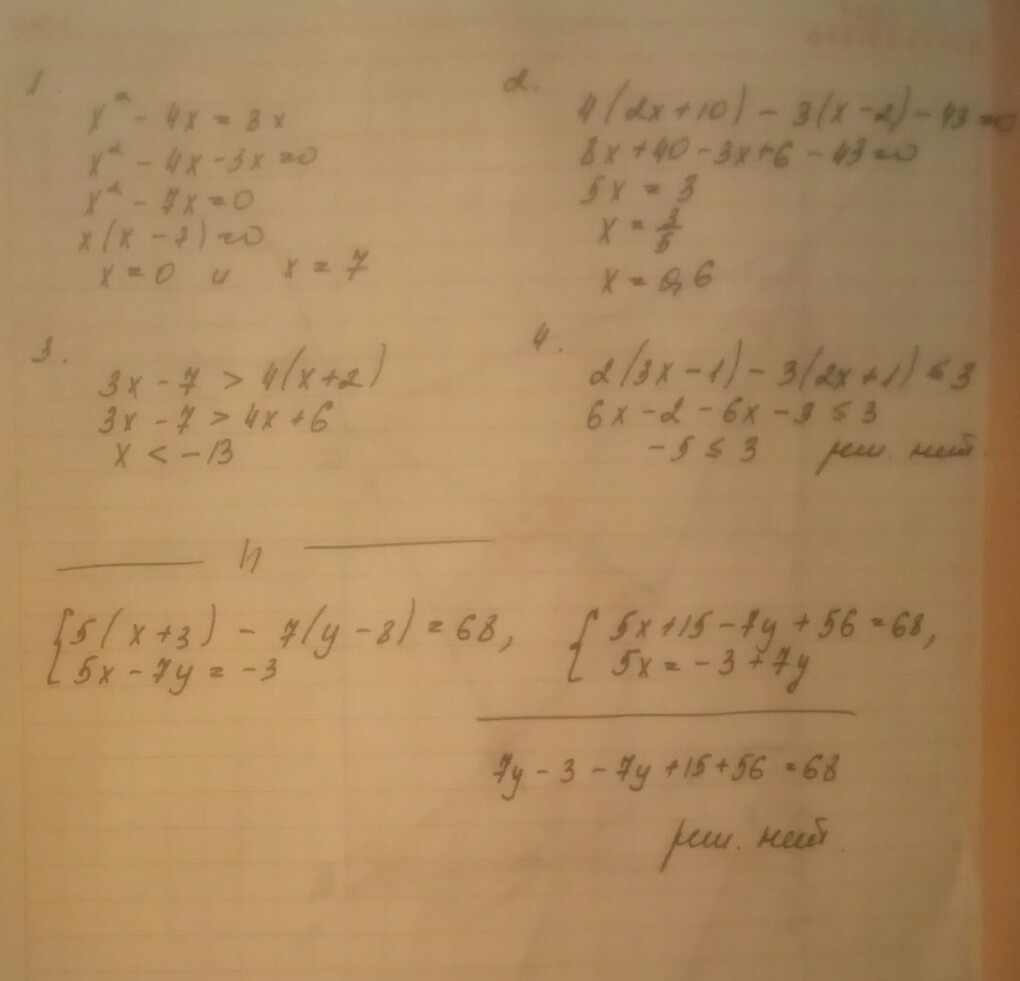 1.
x² - 4x = 3x
x² - 4x - 3x = 0
x² - 7x = 0
x(x - 7) = 0
x = 0 и x = 7
2.
4(2x + 10) - 3(x - 2) - 43 = 0
8x + 40 - 3x + 6 - 43 = 0
5x = 3
x = 3/5
x = 0,6
3.
3x - 7 > 4(x + 2)
3x - 7 > 4x + 6
x < -13
4.
2(3x - 1) - 3(2x + 1) ≤ 3
6x - 2 - 6x - 3 ≤ 3
-5 ≤ 3 реш. нет.
{5(x + 3) - 7(y - 8) = 68,
5x - 7y = -3
{5x + 15 - 7y + 56 = 68,
5x = -3 + 7y
7y - 3 - 7y + 15 + 56 = 68
реш. нет.